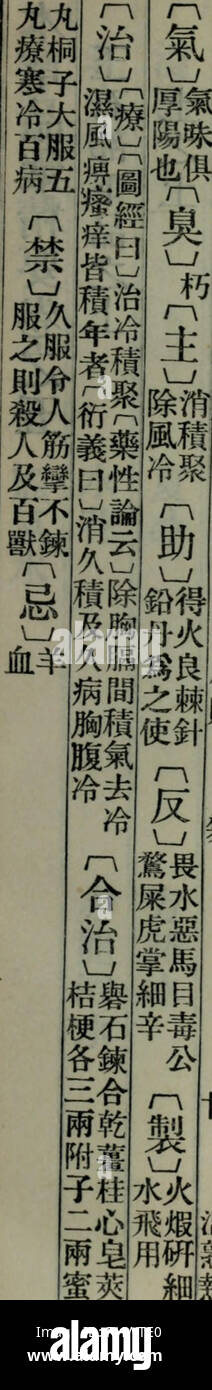 〔氣〕氣味俱厚陽也〔臭〕朽〔主〕消積聚除風冷〔助〕得火良棘針鉛丹爲之使〔反〕畏水惡馬目毒公鶩屎虎掌細辛〔製〕火煅硏細水飛用
〔治〕〔療〕〔圖經曰〕治冷積聚〔藥性論云〕除胸膈間積氣去冷濕風痺瘙痒皆積年者〔衍義曰〕消久積及久病胸腹冷〔合治〕礜石鍊合乾薑桂心皂莢桔梗各三兩附子二兩蜜
丸桐子大服五丸療寒冷百病〔禁〕久服令人筋攣不鍊服之則殺人及百獸〔忌〕羊血
alamy
www.alamy.com